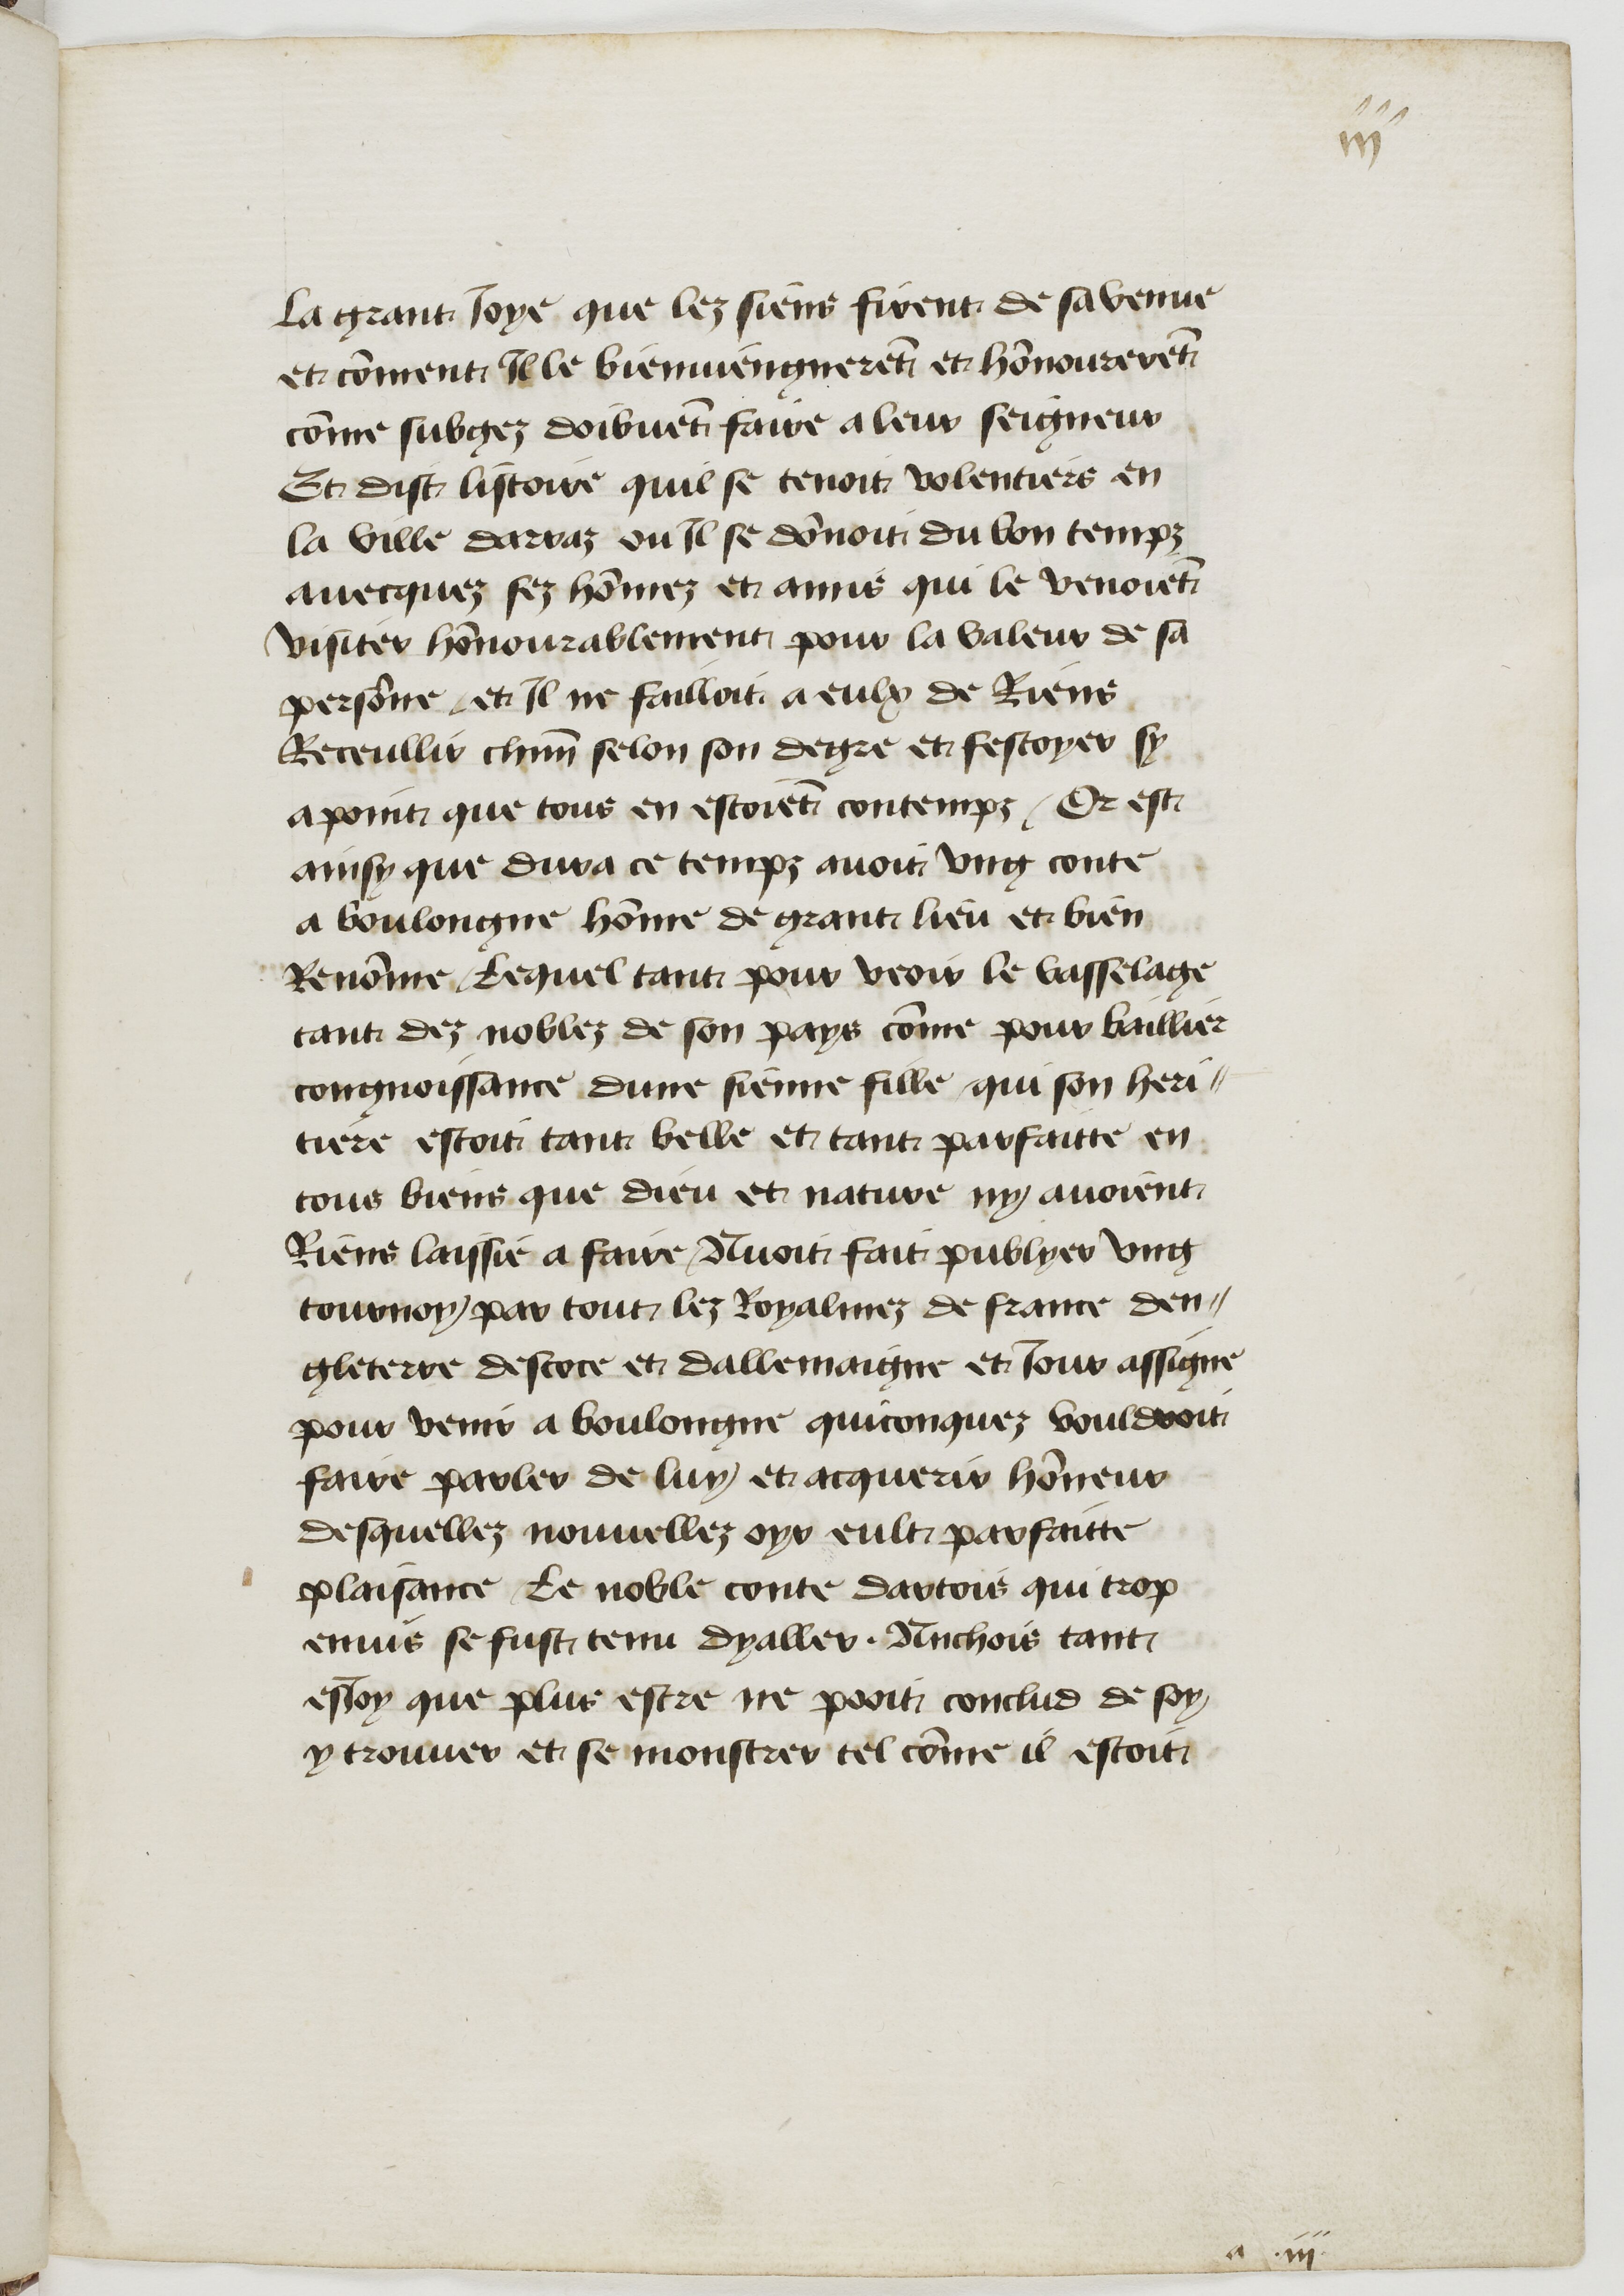 iij
La grant Joye que lez siens firent de sa venue
et cōment Il le bienuiengnerēt et hōnourerēt
cōme subgez doibuēt faire a leur seigneur
Et dist listoire quil se tenoit volentiers en
la ville darraz ou Il se dōnoit du bon tempz
auecquez sez hōmez et amis qui le venoiēt
visiter hōnourablement pour la valeur de sa
persōne / et Il ne failloit a eulx de Riens
Receullir chūn selon son degre et festoyer sy
apoint que tous en estoiēt contempz / Or est
ainsy que dura ce tempz auoit vng conte
a boulongne hōme de grant lieu et bien
Renōme / Lequel tant pour veoir le vasselage
tant dez noblez de son pays cōme pour baillier
congnoissance dune sienne fille / qui son heri〃
tiere estoit tant belle et tant parfaitte en
tous biens que dieu et nature ny auoient
Riens laissie a faire / Auoit fait publyer vng
tournoy par tout lez Royalmez de france den〃
gleterre descoce et dallemaigne et Jour assigne
pour venir a boulongne quiconquez vouldroit
faire parler de luy et acquerir hōneur
desquellez nouuellez oyr eult parfaitte
plaisance / Le noble conte dartois qui trop
enuis se fust tenu dyaller . Anchois tant
esJoy que plus estre ne pooit conclud de soy
y trouuer et se monstrer tel cōme il estoit
a .iij.